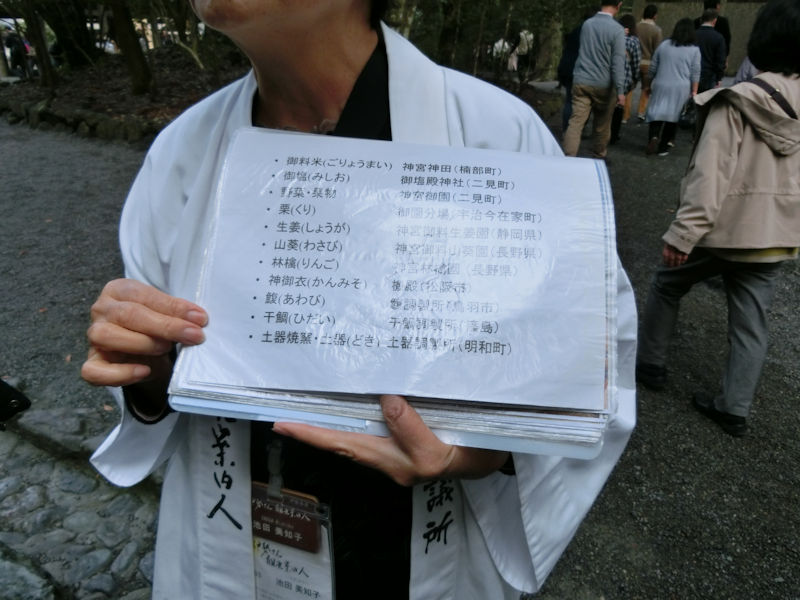 ・御料米(ごりょうまい) 神宮神田(楠部町)
・御塩(みしお) 御塩殿神社(二見町)
・野菜・果物 神宮御園(二見町)
・栗(くり) 御園分場(宇治今在家町)
・生姜(しょうが) 神宮御料生姜園(静岡県)
・山葵(わさび) 神宮御料山葵園(長野県)
・林檎(りんご) 神宮林檎園(長野県)
・神御衣(かんみそ) 機殿(松阪市)
・鰒(あわび) 鰒調製所(鳥羽市)
・干鯛(ひだい) 干鯛調製所(篠島)
・土器焼窯・土器(どき) 土器調製所(明和町)
案内人
議所
池田 美知子
池田 美知子